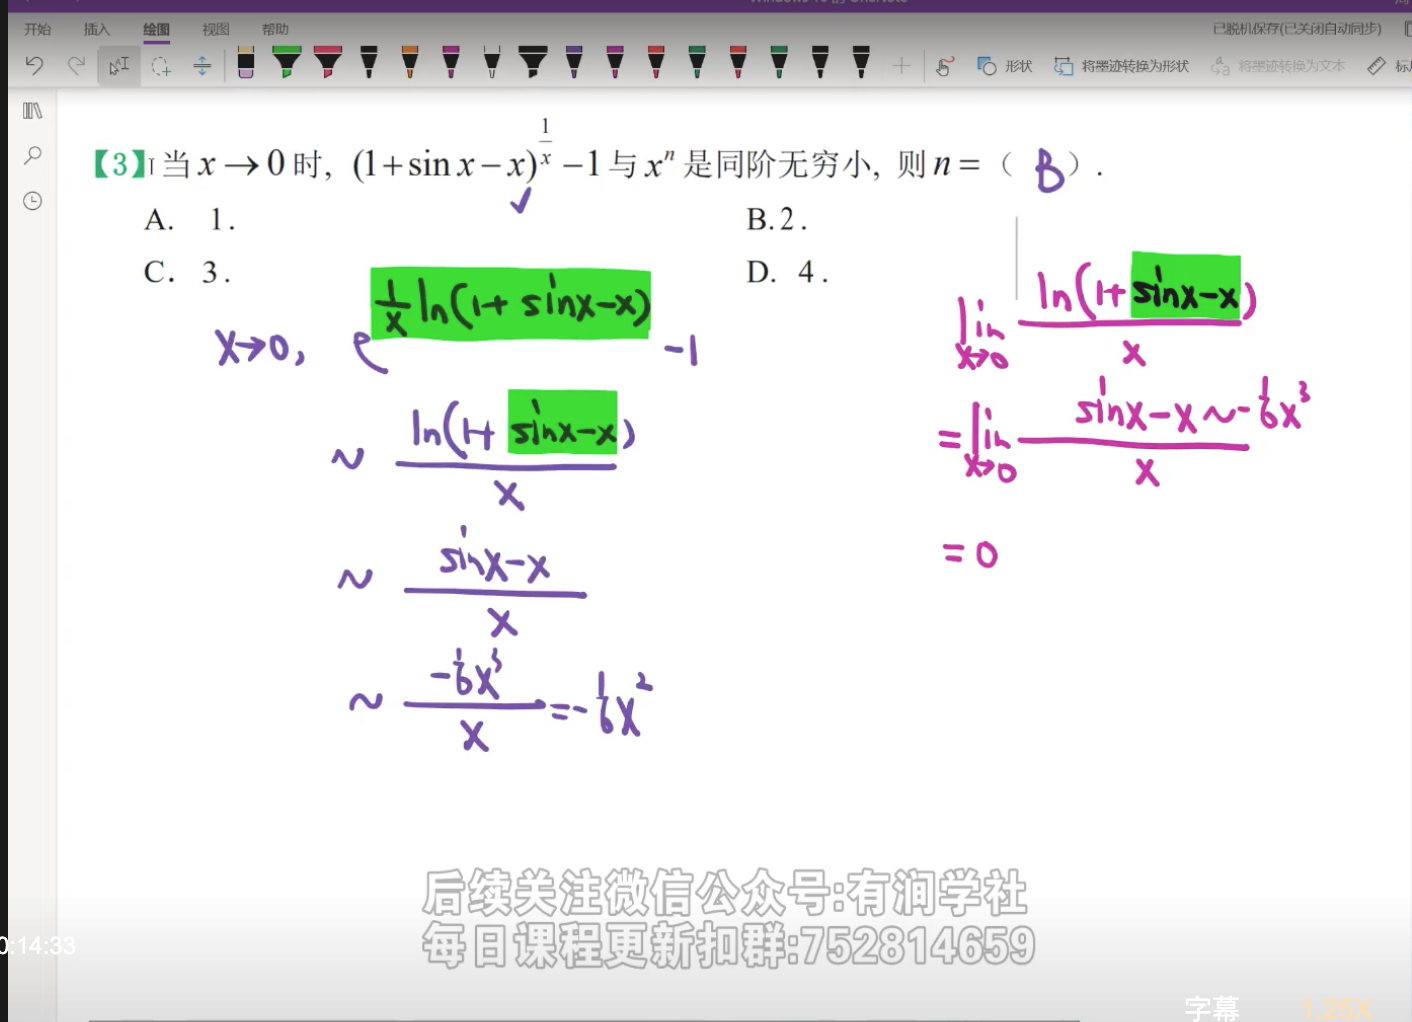 开始 插入 绘图 视图 帮助 已脱机保存(已关闭自动同步)
形状 将墨迹转换为形状 将墨迹转换为文本
【3】当 x → 0 时, (1+sin x − x)^{1/x} − 1 与 x^n 是同阶无穷小, 则 n = ( B ) .
A. 1 . B. 2 .
C. 3 . D. 4 .
x→0, e^{1/x ln(1+sinx−x)} −1
~ ln(1+sinx−x) / x
~ sinx−x / x
~ −1/6x³ / x = −1/6x²
lim x→0 ln(1+sinx−x) / x
= lim x→0 sinx−x ~ −1/6x³ / x
= 0
后续关注微信公众号:有润学社
每日课程更新扣群:752814659
0:14:33
字幕 1.25X